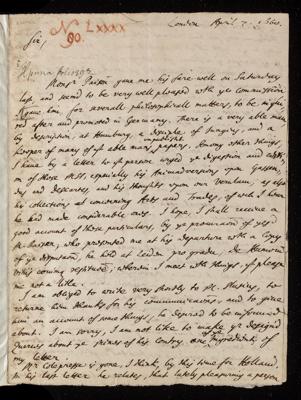 London April 7. 1668.
No LXXXX
90.
Sir,
Monsr Paisen gave me his farewell on Saturday
last, and seemd to be very well pleased with ye Commission
I gave him for severall philosophicall matters, to be inqui-
red after and promoted in Germany. There is a very able man
by description, at Hamburg, a disciple of Jungius, and a
keeper of many of ys able mans papers. Among other things
I have by a letter to yt person urged ye digestion and edition
of those MSS, especially his Animadversions upon Gassen-
dus and Descartes, and his thoughts upon our Verulam, as also
his collections as concerning Arts and Trades, of wch I hear
he had made considerable ones. I hope, I shall receive a
good account of these particulars, by ye procuration of ye sd
Mr Paisen, who presented me at his departure with a Copy
of ye disputation, he held at Leiden pro gradu, de Humoribus
wherein I meet with things, yt please
me not a little.
I am obliged to write very shortly to Mr. Hevelius, to
returne him thanks for his communications, and to give
him an account of some things, he desired to be informed
about. I am sorry, I am not like to make ye designed
Queries about ye mines of his Contry, one Ingredient of
my letter.
Mr Colepresse is gone, I think, by this time for Holland.
In his last letter he relates, that lately pleasuring a person